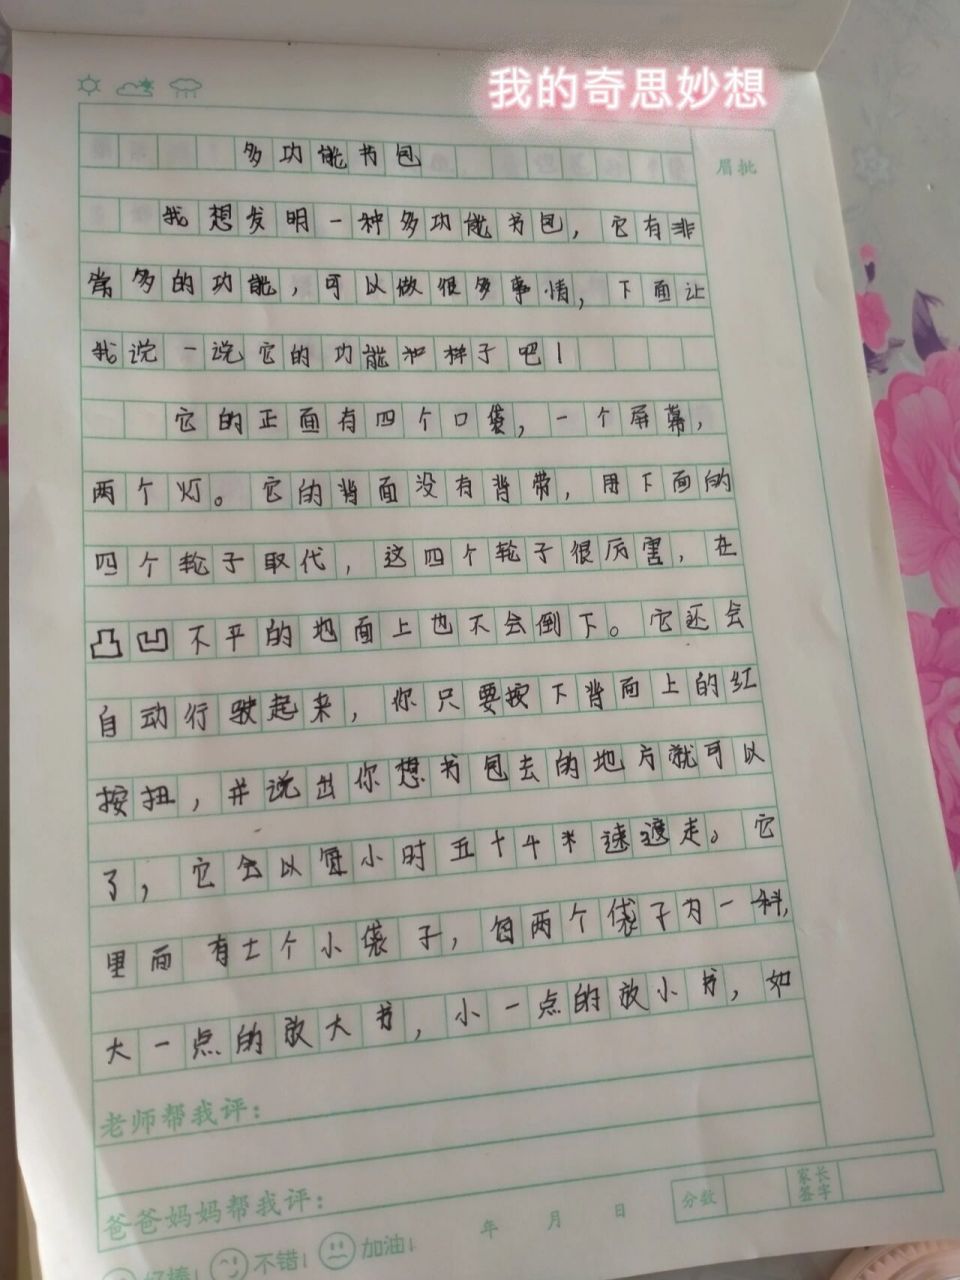 我的奇思妙想
眉批
多功能书包
我想发明一种多功能书包，它有非
常多的功能，可以做很多事情，下面让
我说一说它的功能和样子吧！
它的正面有四个口袋，一个屏幕，
两个灯。它的背面没有背带，用下面的
四个轮子取代，这四个轮子很厉害，在
凸凹不平的地面上也不会倒下。它还会
自动行驶起来，你只要按下背面上的红
按扭，并说出你想书包去的地方就可以
了，它会以每小时五十千米速逮走。它
里面有七个小袋子，每两个袋子为一科，
大一点的放大书，小一点的放小书，如
老师帮我评：
爸爸妈妈帮我评：
年 月 日
分数
家长签字
好棒！ 不错！ 加油！